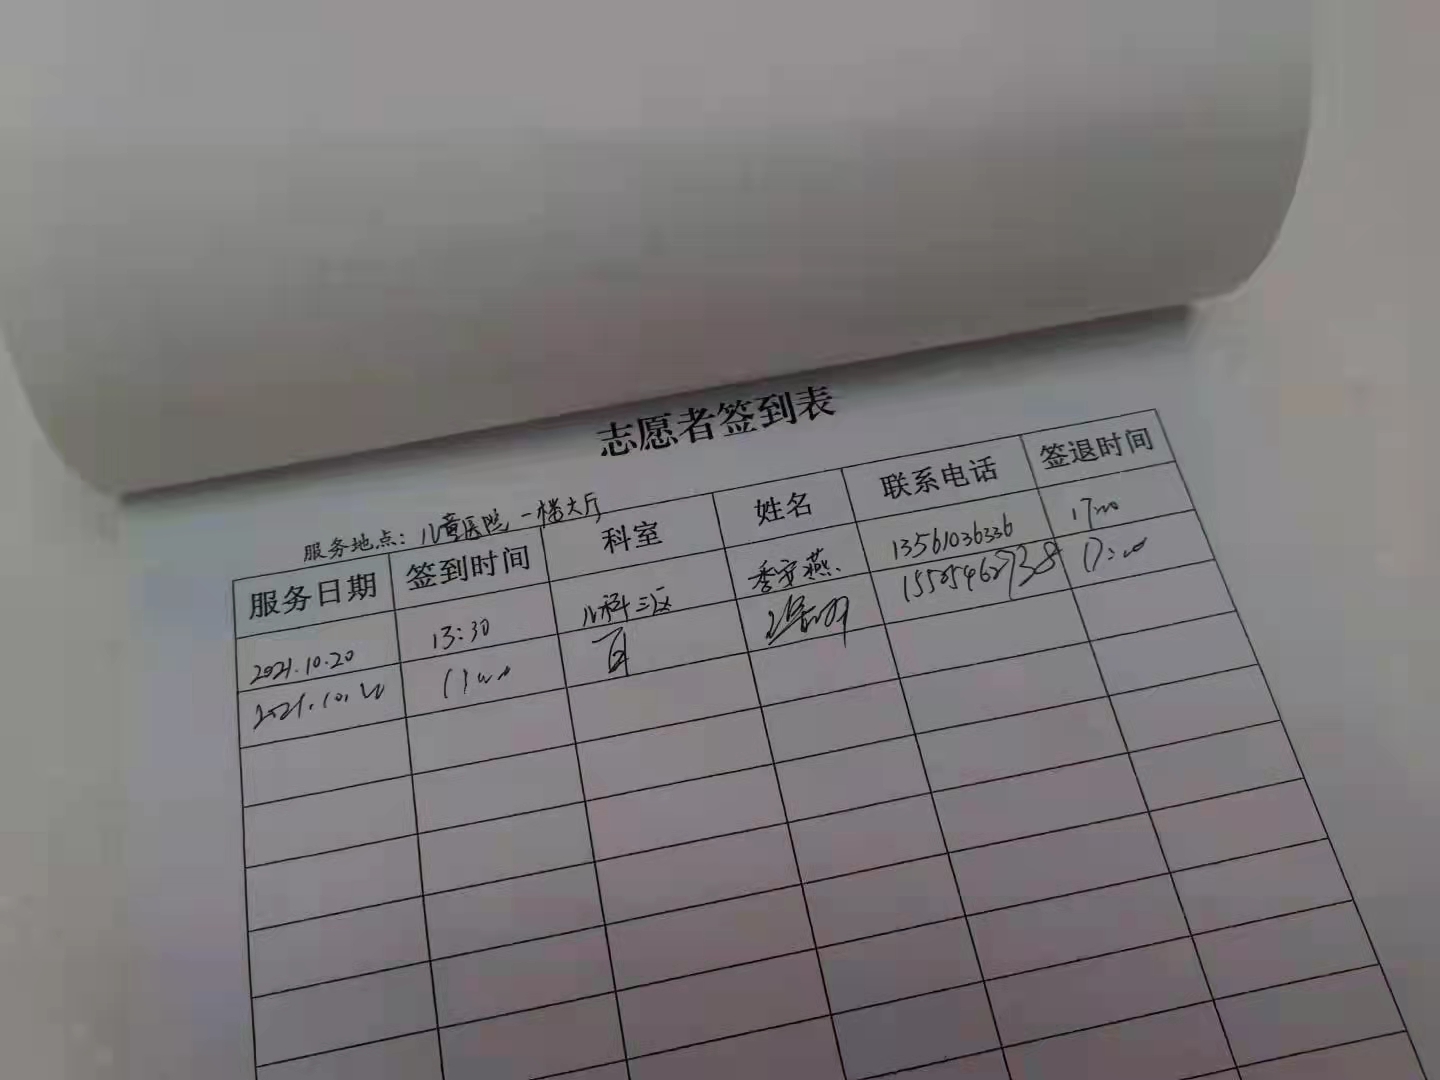 志愿者签到表
服务地点：儿童医院一楼大厅
服务日期 签到时间 科室 姓名 联系电话 签退时间
2021.10.20 13:30 儿科三区 季安燕 13561036336 17:00
2021.10.20